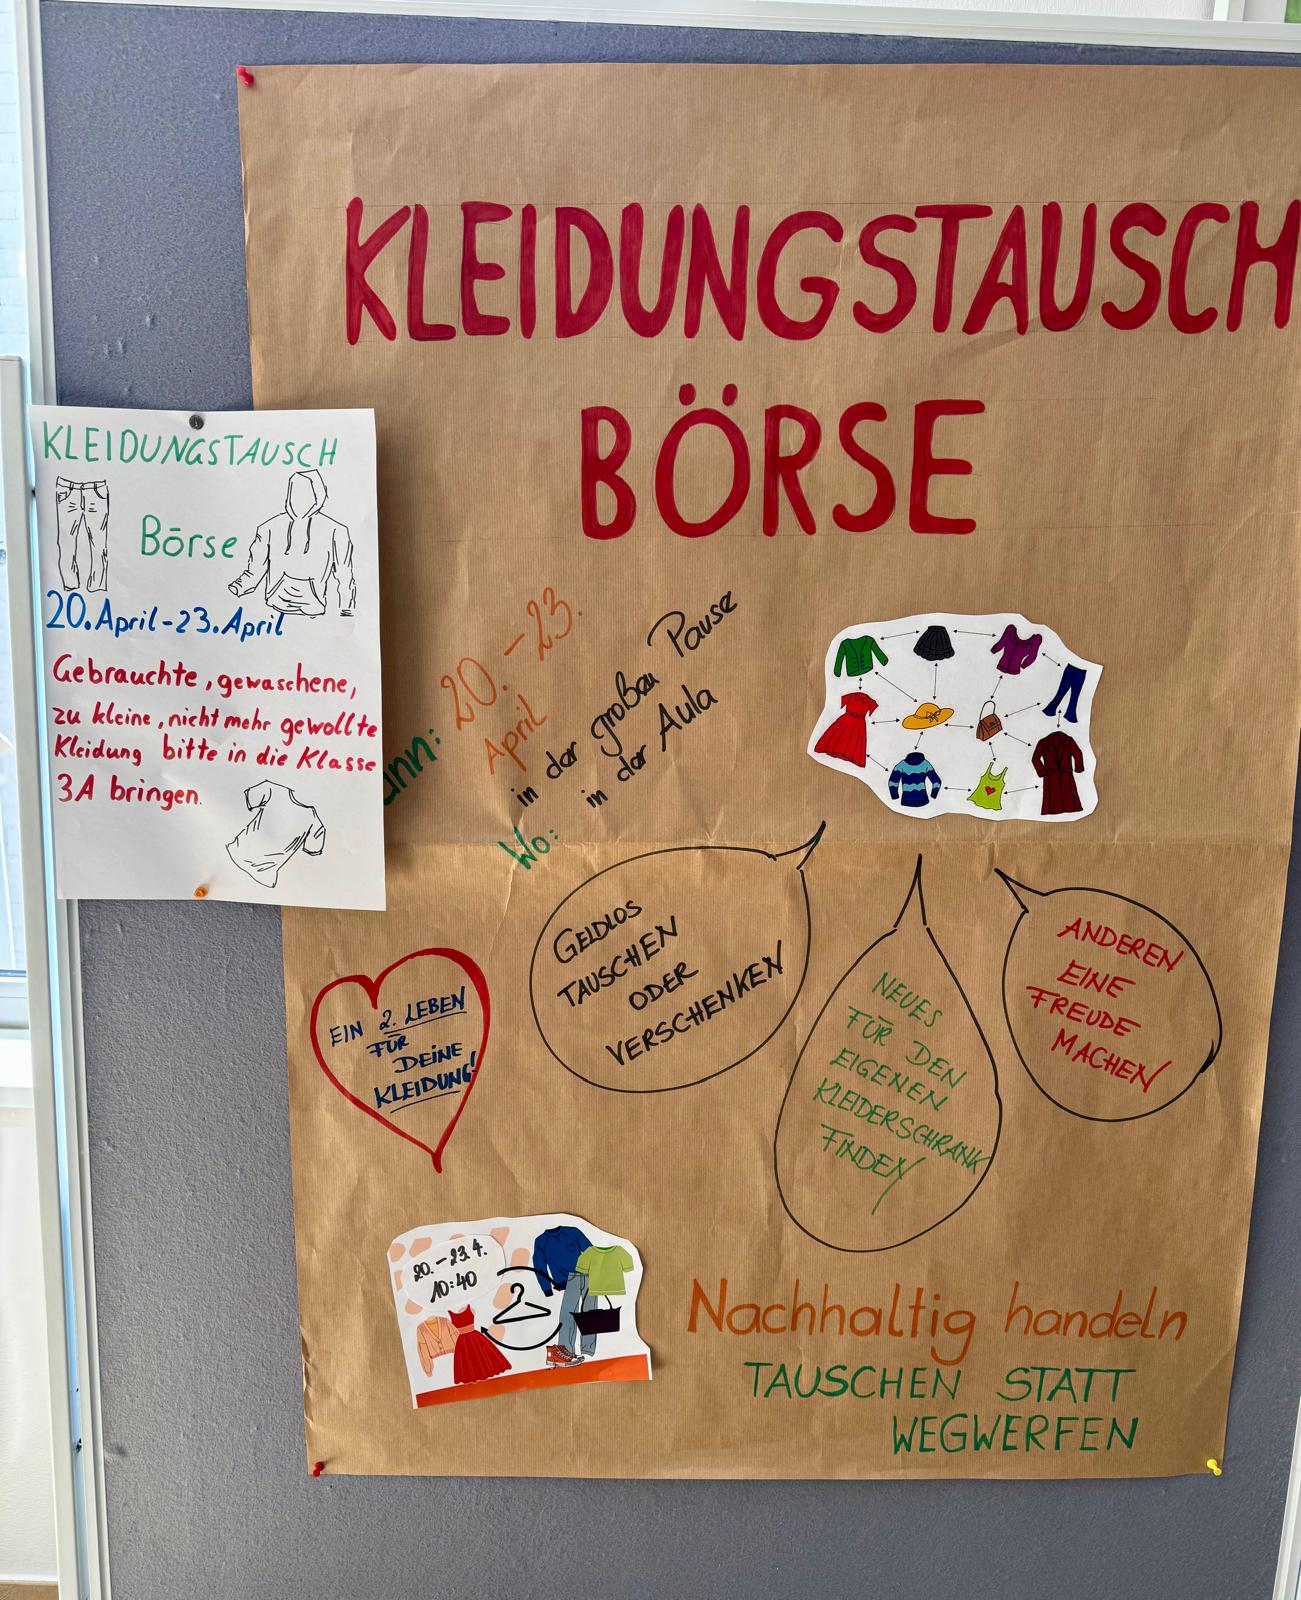 KLEIDUNGSTAUSCH
BÖRSE
KLEIDUNGSTAUSCH
Börse
20. April - 23. April
Gebrauchte, gewaschene,
zu kleine, nicht mehr gewollte
Kleidung bitte in die Klasse
3A bringen.
ann: 20. - 23.
April
in der großen Pause
Wo: in der Aula
GELDLOS
TAUSCHEN
ODER
VERSCHENKEN
NEUES
FÜR DEN
EIGENEN
KLEIDERSCHRANK
FINDEN
ANDEREN
EINE
FREUDE
MACHEN
EIN 2. LEBEN
FÜR
DEINE
KLEIDUNG!
20. - 23.4.
10:40
Nachhaltig handeln
TAUSCHEN STATT
WEGWERFEN